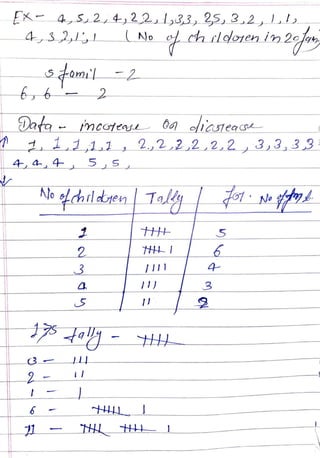 Ex - 4, 5, 2, 4, 2, 2, 1, 3, 3, 2, 5, 3, 2, 1, 1,
4, 3, 2, 1, 1 (No of children in 20 fam
5 famil - 2
6, 6 - 2
Data - increase or dicrease
1, 1, 1, 1, 1, 2, 2, 2, 2, 2, 2, 3, 3, 3, 3
4, 4, 4, 5, 5,
No of children | Tally | for. No of
1 | 𝍸 | 5
2 | 𝍸 I | 6
3 | IIII | 4
4 | III | 3
5 | II | 2
tally - 𝍸
3 - III
2 - II
1 - I
6 - 𝍸 I
11 - 𝍸 𝍸 I